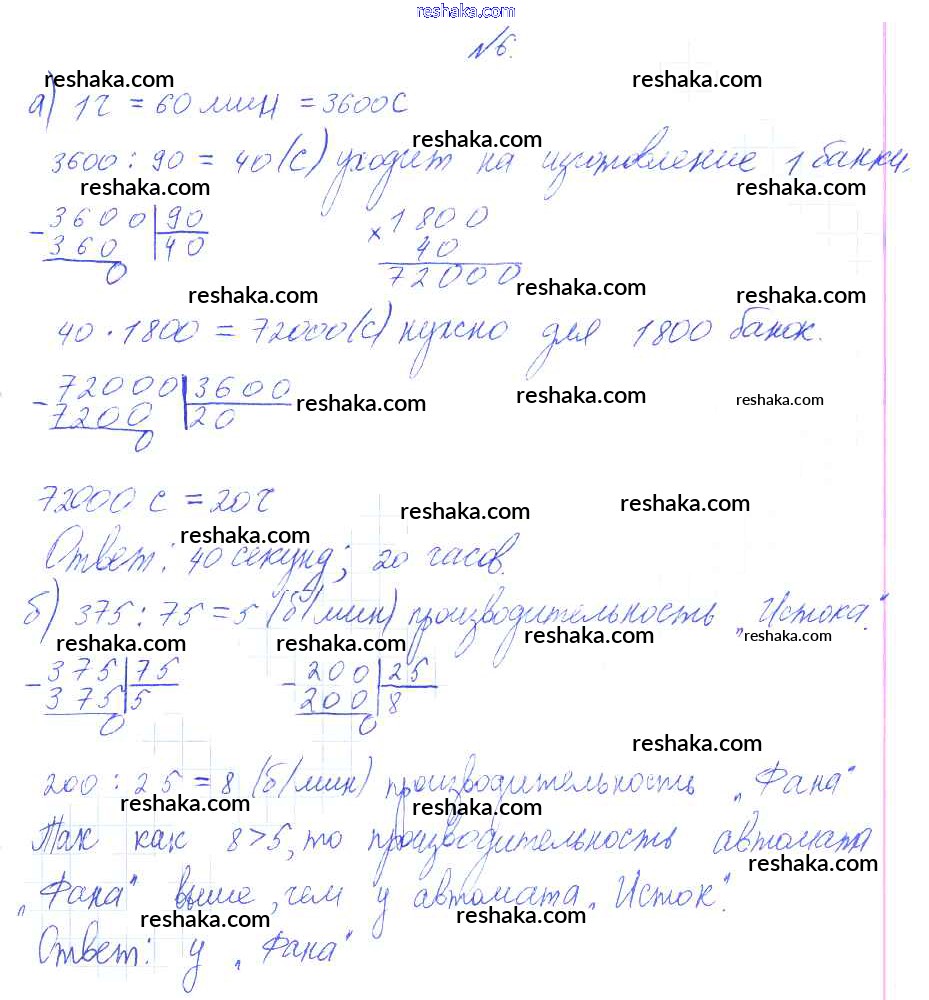 reshaka.com
№6.
reshaka.com reshaka.com
а) 1ч = 60 мин = 3600с
reshaka.com
3600 : 90 = 40 (с) уходит на изготовление 1 банки.
reshaka.com reshaka.com
- 3600 | 90 × 1800
360 | 40 40
0 72000
reshaka.com reshaka.com reshaka.com
40 · 1800 = 72000 (с) нужно для 1800 банок.
- 72000 | 3600
7200 | 20
0
reshaka.com reshaka.com reshaka.com
72000 с = 20ч
reshaka.com reshaka.com reshaka.com
Ответ: 40 секунд; 20 часов.
б) 375 : 75 = 5 (б/мин) производительность „Истока".
reshaka.com reshaka.com reshaka.com
- 375 | 75 - 200 | 25
375 | 5 200 | 8
0 0
reshaka.com
200 : 25 = 8 (б/мин) производительность „Фана"
reshaka.com reshaka.com
Так как 8 > 5, то производительность автомата
reshaka.com
„Фана" выше, чем у автомата „Исток".
reshaka.com reshaka.com
Ответ: у „Фана"